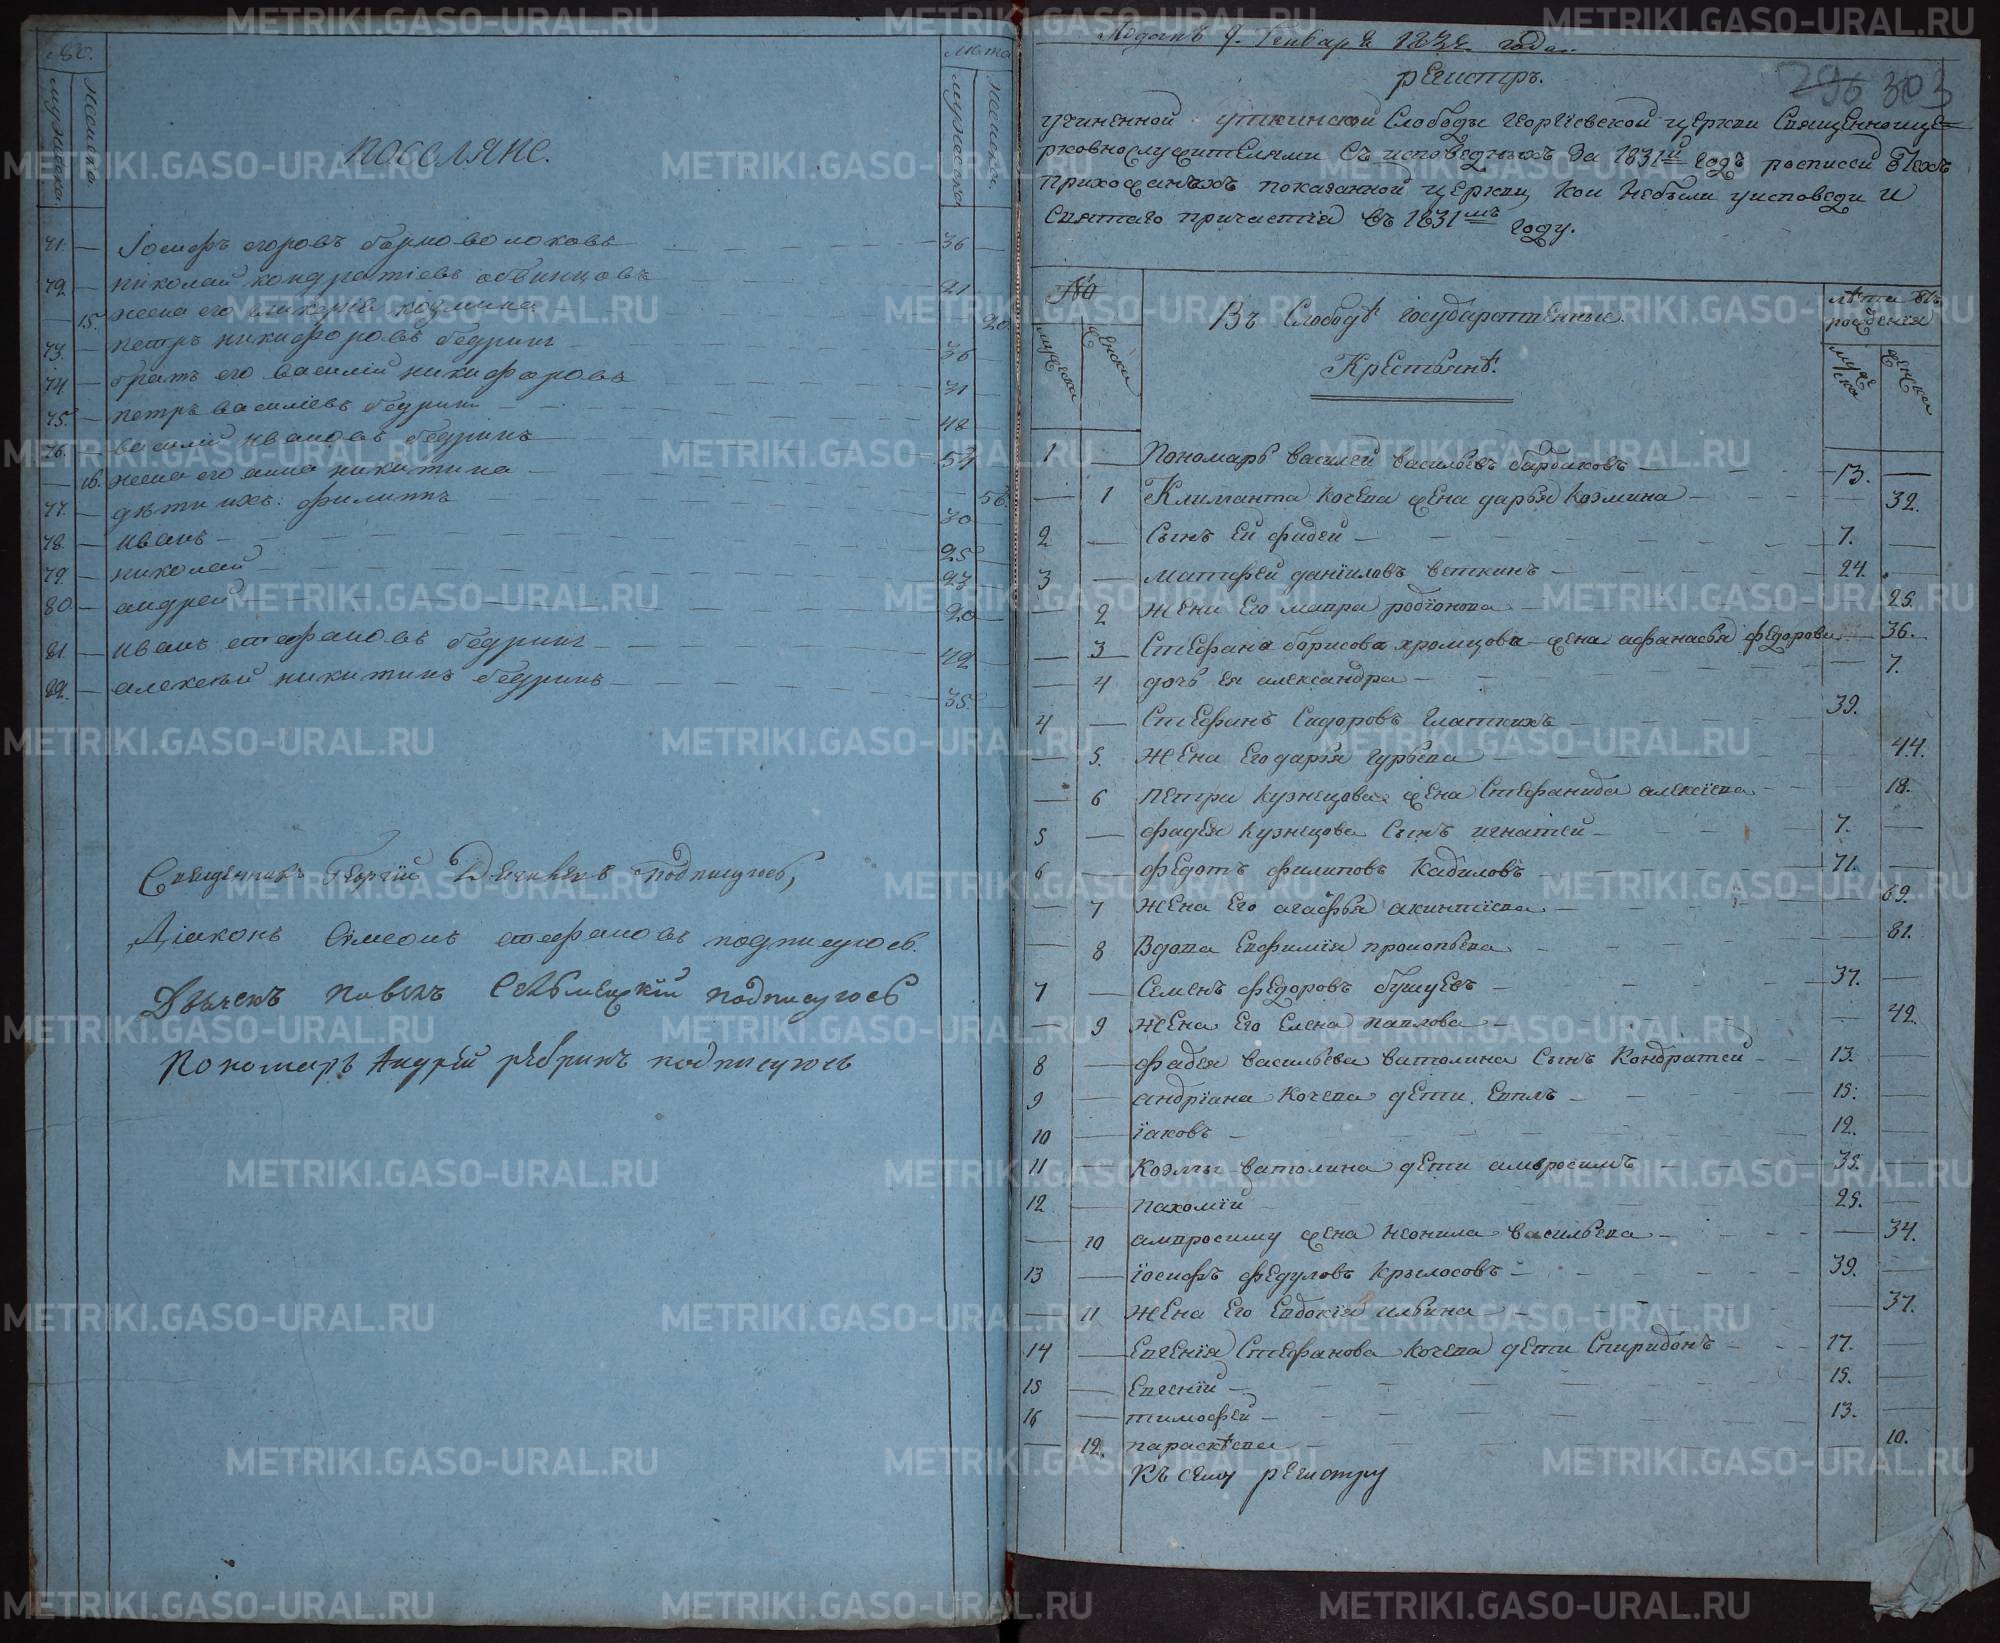 №.
лѣта
мужеска.
женска.
мужеска
женска.
поселяне.
71. Іосифъ егоровъ 36
72. николай кондратіевъ обвинцовъ 21
15. жена его гликеріа козмина 20
73. петръ никифоровъ бедринъ 36
74. братъ его василій никифоровъ 31
75. петръ василіевъ бедринъ 48
76. василій ивановъ бедринъ 57
16. жена его анна никитина 56
77. дѣти ихъ: филиппъ 30
78. иванъ 25
79. николай 23
80. андрей 20
81. иванъ стефановъ бедринъ 42
82. алексѣй никитинъ бедринъ 35
Священникъ Георгій подписуюсь,
Діаконъ Симеонъ стефановъ подписуюсь.
Дьячекъ Павелъ Сельменскій подписуюсь
Пономарь Андрей рѣбринъ подписуюсь
Поданъ 9. Генваря 1832 года.
303
регистръ.
учиненной уткинской Слободы георгіевской церкви Священноцер-
рковнослужителями Съ исповедныхъ За 1831й годъ росписей о Тѣхъ
прихожанѣхъ показанной церкви, кои небыли уисповеди и
Святаго причастія въ 1831мъ году.
№
Въ Слободѣ государственные
Крестьянѣ.
лѣта отъ рождения
мужеска
женска
мужеска
женска
1 Пономарь василей васильевъ барбаковъ 13.
1 Климанта кочева жена дарья козмина 32.
2 Сынъ ей фадей 7.
3 матфей даніиловъ веткинъ 24.
2 жена Его мавра родіонова 25.
3 Стефана борисова хромцова жена афанасья федорова 36.
4 дочь ея александра 7.
4 Стефанъ Сидоровъ глаткихъ 39.
5. жена Его дарья гурьева 44.
6 петра кузнецова жена Стефанида алексіева 18.
5 фадея кузнецова Сынъ игнатей 7.
6 федотъ филиповъ Кабиловъ 71.
7 жена Его агафья акинтіева 69.
8 Вдова Евфимія прокопьева 81.
7 Семенъ федоровъ бушуевъ 37.
9 жена Его Елена павлова 42.
8 фадея васильева ватолина Сынъ Кондратей 13.
9 андріана кочева дети. Евплъ 15.
10 іаковъ 12.
11 козмы ватолина дети амвросимъ 35.
12 пахомій 25.
10 амвросиму жена неонила васильева 34.
13 іосифъ федуловъ крылосовъ 39.
11 жена Его Евдокія ильина 37.
14 Евгенія Стефанова кочева дети Спиридонъ 17.
15 Евгеній 15.
16 тимофей 13.
12. параскѣва 10.
Къ сему регистру
METRIKI.GASO-URAL.RU